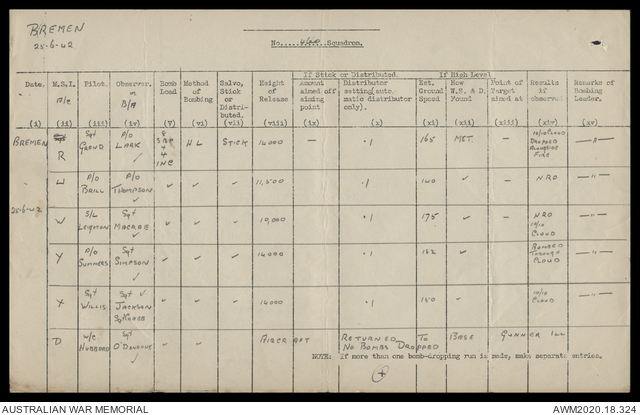 BREMEN
25-6-42
No....460....Squadron.
If Stick or Distributed.
If High Level
Date. M.S.I. Pilot. Observer. Bomb Method Salvo, Height Amount Distributor Est. How Point of Results Remarks of
A/c in Load of Stick or of aimed off setting(auto Ground W.S. & D. Target if Bombing
B/A Bombing Distri- Release aiming matic distributor Speed Found aimed at observed Leader.
buted. point only).
(i) (ii) (iii) (iv) (V) (vi) (vii) (viii) (ix) (x) (xi) (xii) (xiii) (xiv) (xv)
BREMEN R Sgt P/O LARK INC HL STICK 14,000 — .1 165 MET. — 10/10 CLOUD DROPPED FIRE — " —
U P/O BRILL P/O THOMPSON ✓ ✓ ✓ ✓ 11,500 .1 140 ✓ — NRO — " —
25-6-42 W S/L LEIGHTON Sgt MACRAE ✓ ✓ ✓ ✓ 10,000 .1 175 ✓ — NRO 10/10 CLOUD — " —
Y P/O SUMMERS Sgt SIMPSON ✓ ✓ ✓ ✓ 14000 .1 152 ✓ BOMBED THROUGH CLOUD — " —
X Sgt WILLIS Sgt ✓ JACKSON ✓ ✓ ✓ 14000 .1 150 ✓ 10/10 CLOUD — " —
D W/C HUBBARD Sgt O'DONOHUE ✓ AIRCRAFT RETURNED TO BASE GUNNER ILL
NO BOMBS DROPPED
NOTE: If more than one bomb-dropping run is made, make separate entries.
AUSTRALIAN WAR MEMORIAL
AWM2020.18.324